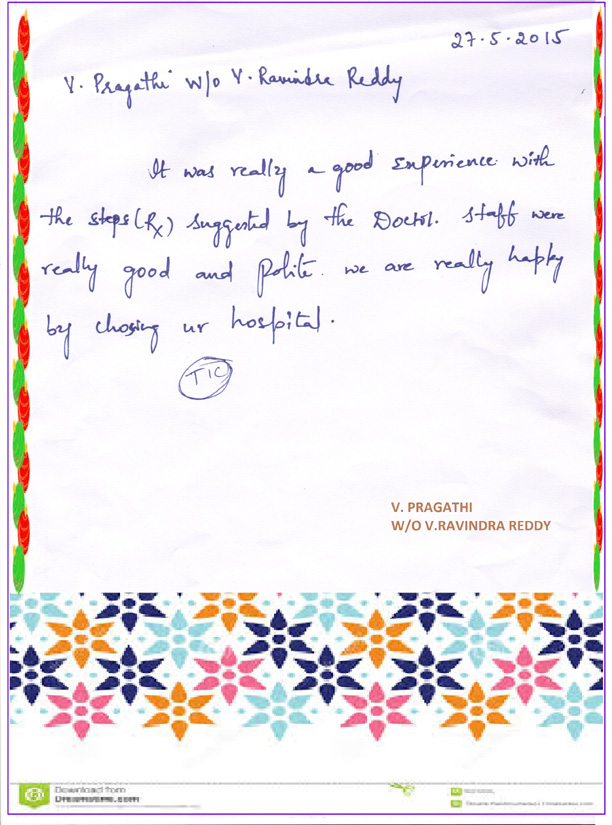 27.5.2015
V. Pragathi W/o V. Ravindra Reddy
It was really a good experience with
the steps (Rx) suggested by the Doctor. staff were
really good and polite. we are really happy
by chosing ur hospital.
TIC
V. PRAGATHI
W/O V.RAVINDRA REDDY
Download from
Dreamstime.com